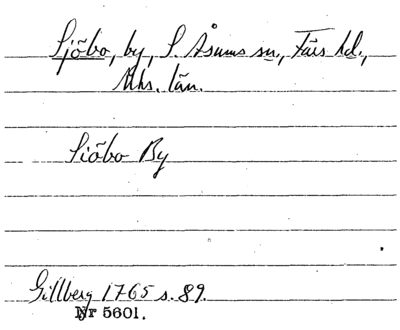 Sjöbo, by, S. Åsums sn, Färs hd.,
Mhs. län.
Siöbo By
Gillberg 1765 s. 89.
Nr 5601.